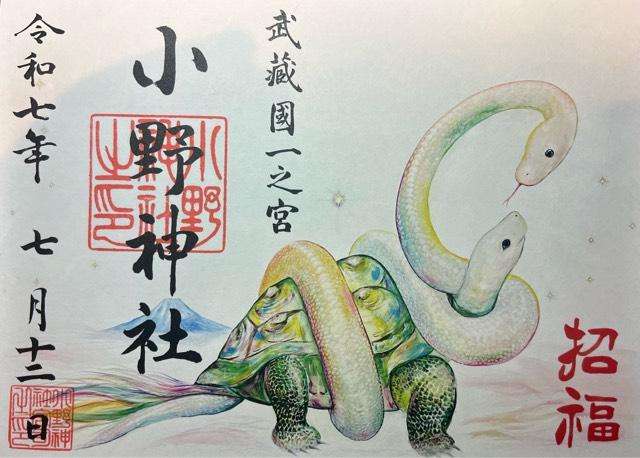 武蔵國一之宮
小野神社
令和七年 七月十二日
招福
小野神社之印